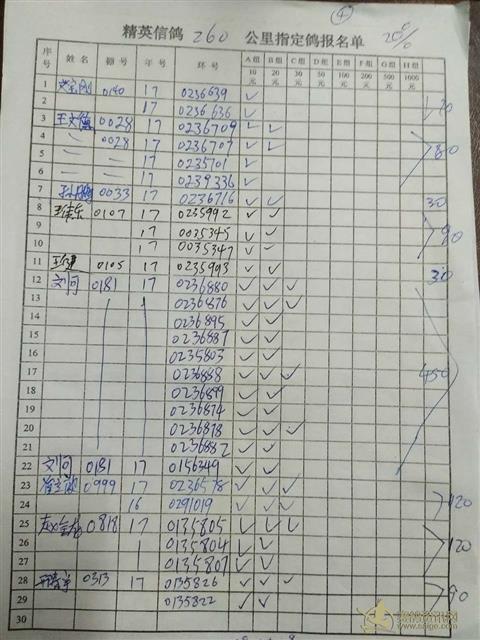 ④
20%
精英信鸽 260 公里指定鸽报名单
序号 姓名 棚号 年号 环号 A组 10元 B组 20元 C组 30元 D组 50元 E组 100元 F组 200元 G组 500元 H组 1000元
1 0140 17 0236639 ✓
2 17 0236636 ✓ 20
3 王文德 0028 17 0236709 ✓ ✓
4 0028 17 0236707 ✓ ✓ 80
5 17 0235701 ✓
6 17 0239336 ✓
7 0033 17 0236716 ✓ ✓ 30
8 0107 17 0235992 ✓ ✓
9 17 0035345 ✓ ✓ 90
10 17 0035347 ✓ ✓
11 0105 17 0235993 ✓ ✓ 30
12 刘问 0181 17 0236880 ✓ ✓ ✓
13 0236876 ✓ ✓ ✓
14 0236895 ✓ ✓
15 0236887 ✓ ✓
16 0235803 ✓ ✓
17 0236888 ✓ ✓ ✓ 450
18 0236899 ✓ ✓
19 0236874 ✓ ✓
20 0236878 ✓ ✓ ✓
21 0236882 ✓ ✓
22 刘问 0181 17 0156349 ✓ ✓
23 0999 17 0236578 ✓ ✓ ✓
24 16 0291019 ✓ ✓ ✓ 120
25 0818 17 0135805 ✓ ✓ ✓
26 0135804 ✓ ✓ 120
27 0135807 ✓ ✓
28 0313 17 0135826 ✓ ✓ ✓
29 0135822 ✓ ✓ 90
30
www.saige.com